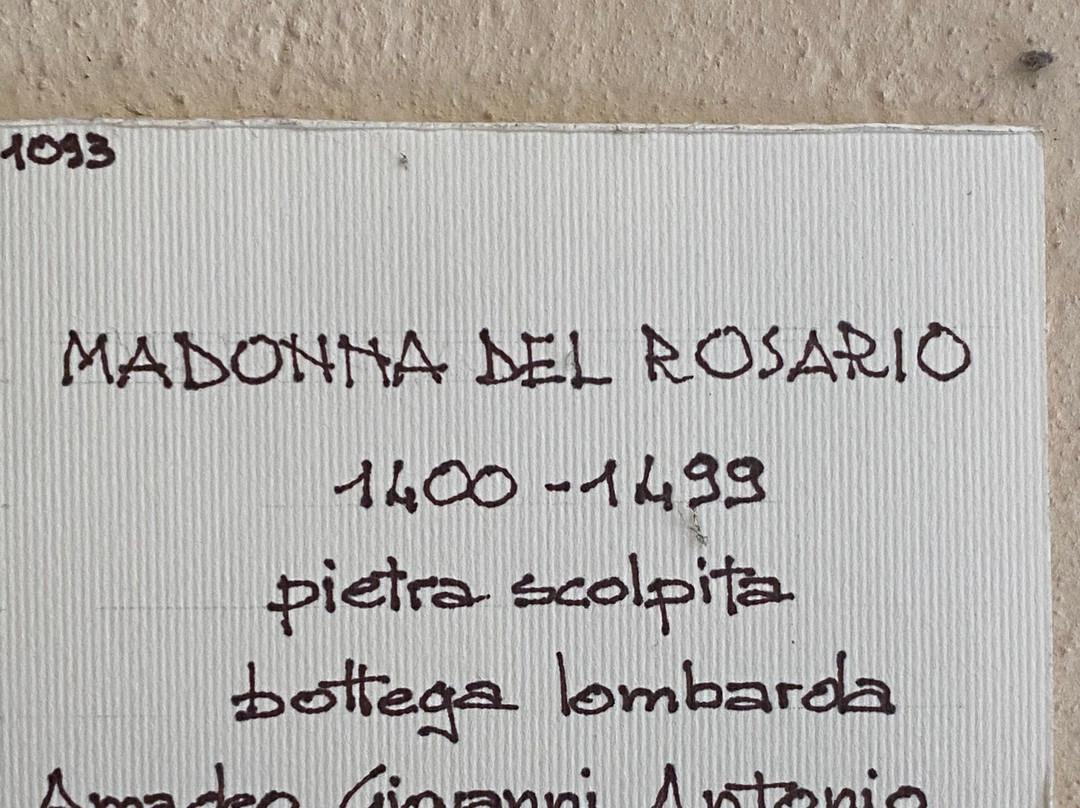 1093
MADONNA DEL ROSARIO
1400-1499
pietra scolpita
bottega lombarda
Amadeo Giovanni Antonio